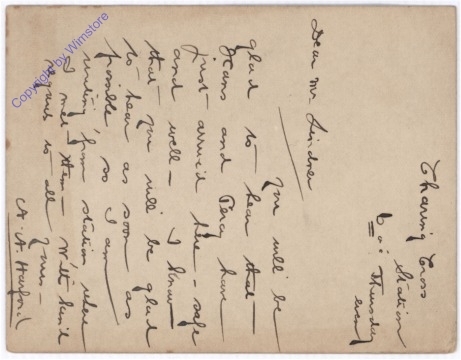 Charing Cross
Station
6 o: Thursday
even
Dear Mr
You will be
glad to hear that
Jeans and Percy have
just arrived here - safe
and well - I know
that you will be glad
to hear as soon as
possible, so I am
writing from station where
I met them - With kind
regards to all Yours -
A. A. Harford
Copyright by Wimstore